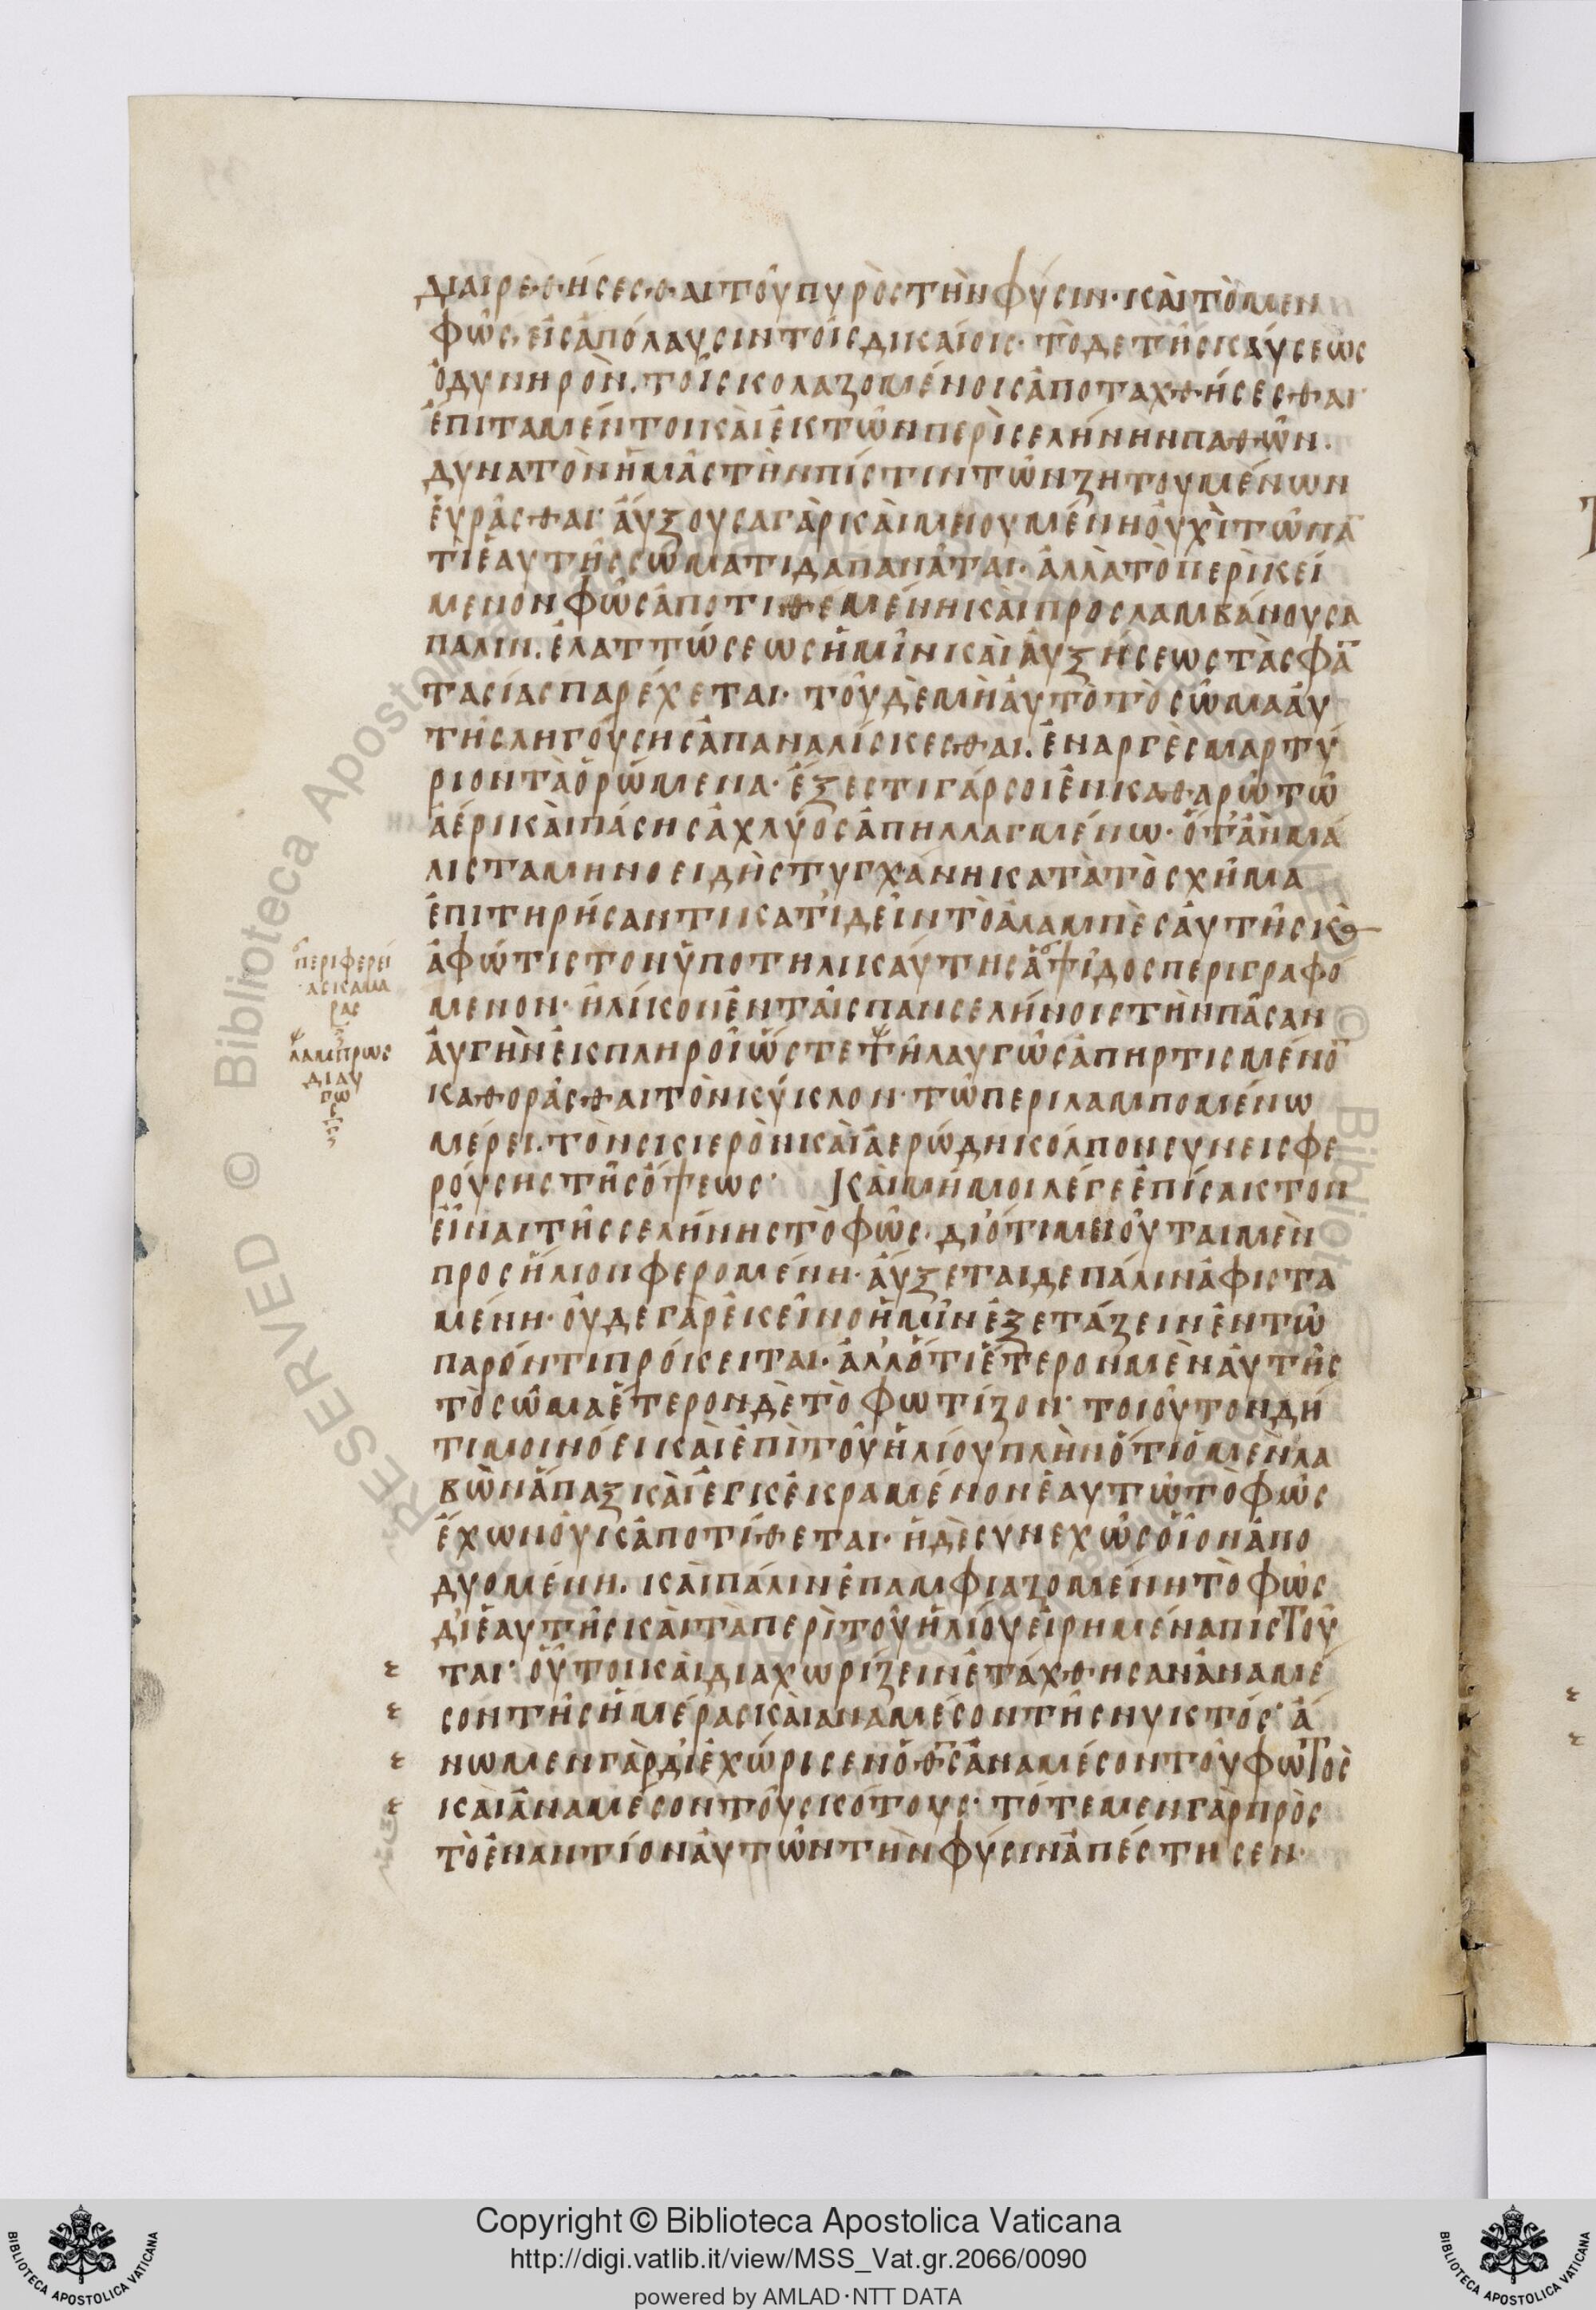 διαιρεθήσεσθαι τοῦ πυρὸς τὴν φύσιν· καὶ τὸ μεν
φῶς, εἰς ἀπόλαυσιν τοῖς δικαίοις· τὸ δε τῆς καύσεως
ὀδυνηρὸν. τοῖς κολαζομένοις ἀποταχθήσεσθαι·
ἔπιτα μέντοι καὶ ἐκ τῶν περὶ σελήνην παθῶν.
δυνατὸν ἡμᾶς τὴν πίστιν τῶν ζητουμένων
ἑυρᾶσθαι· ἄυξουσα γὰρ καὶ μειουμένη ὀυχὶ τῶ πα̅
τὶ ἑαυτῆς σώματι δαπανᾶται· ἀλλὰ τὸ περικεί
μενον φῶς ἀποτιθεμένη καὶ προσλαμβάνουσα
παλιν. ἐλαττώσεως ἡμῖν καὶ ἀυξήσεως τὰς φα̅
τασίας παρέχεται· τοῦ δὲ μὴ ἀυτὸ τὸ σῶμα ἀυ
τῆς ληγούσης ἀπαναλίσκεσθαι. ἐναργὲς μαρτύ
ριον τὰ ὁρώμενα· ἔξεστι γάρ σοι ἐν καθαρῶ τῶ
ἀέρι καὶ πάσης ἀχλύος ἀπηλλαγμένω· ὅτ' ἂν μά
λιστα μηνοειδὴς τυγχάνη κατὰ τὸ σχῆμα
ἐπιτηρήσαντι κατιδεῖν τὸ ἀλαμπὲς ἀυτῆς κ̀
ἀφώτιστον ὑπο τηλικαύτης ἁψῖδος περιγραφό
μενον· ἡλίκον ἐν ταῖς πανσελήνοις τὴν πᾶσαν
ἀυγὴν ἐκπληροῖ ὥστε τηλαυγῶς ἀπηρτισμένο̅
καθορᾶσθαι τὸν κύκλον· τῶ περιλαμπομένω
μέρει. τὸν σκιερὸν καὶ ἀερώδη κόλπον συνεισφε
ρούσης τῆς ὄψεως· Καὶ μή μοι λέγε ἐπίσακτον
εἶναι τῆς σελήνης τὸ φῶς· διότι μειοῦται μὲν
προς ἥλιον φερομένη· ἄυξεται δε πάλιν ἀφιστα
μένη· ὀυδε γὰρ ἐκεῖνο ἡμῖν ἐξετάζειν ἐν τῶ
παρόντι πρόκειται· ἀλλ' ὅτι ἕτερον μὲν ἀυτῆς
τὸ σῶμα ἕτερον δὲ τὸ φωτίζον· τοιοῦτον δή
τι μοι νόει καὶ ἐπὶ τοῦ ἡλίου πλὴν ὅτι ὁ μὲν λα
βὼν ἅπαξ καὶ ἐγκεκραμένον ἑαυτῶ τὸ φῶς
ἔχων ὀυκ ἀποτίθεται· ἡ δὲ συνεχῶς οἷον ἀπο
δυομένη. καὶ πάλιν ἐπαμφιαζομένη τὸ φῶς
δι' ἑαυτῆς καὶ τὰ περὶ τοῦ ἡλίου εἰρημένα πιστοῦ
ται· ὅυτοι καὶ διαχωρίζειν ἐτάχθησαν ἀναμέ
σον τῆς ἡμέρας καὶ αναμέσον τῆς νυκτός· ἄ
νω μεν γὰρ διεχώρισεν ὁ θ̅ς̅ ἀναμέσον τοῦ φωτὸς
καὶ ἀναμέσον τοῦ σκότους· τότε μεν γὰρ πρὸς
τὸ ἐναντίον ἀυτῶν τὴν φύσιν ἀπέστησεν·
περιφερεί
ας καμα
ρας
λαμπρως
διαυ
πω
ς
Copyright © Biblioteca Apostolica Vaticana
http://digi.vatlib.it/view/MSS_Vat.gr.2066/0090
powered by AMLAD·NTT DATA
BIBLIOTECA APOSTOLICA VATICANA
BIBLIOTECA APOSTOLICA VATICANA